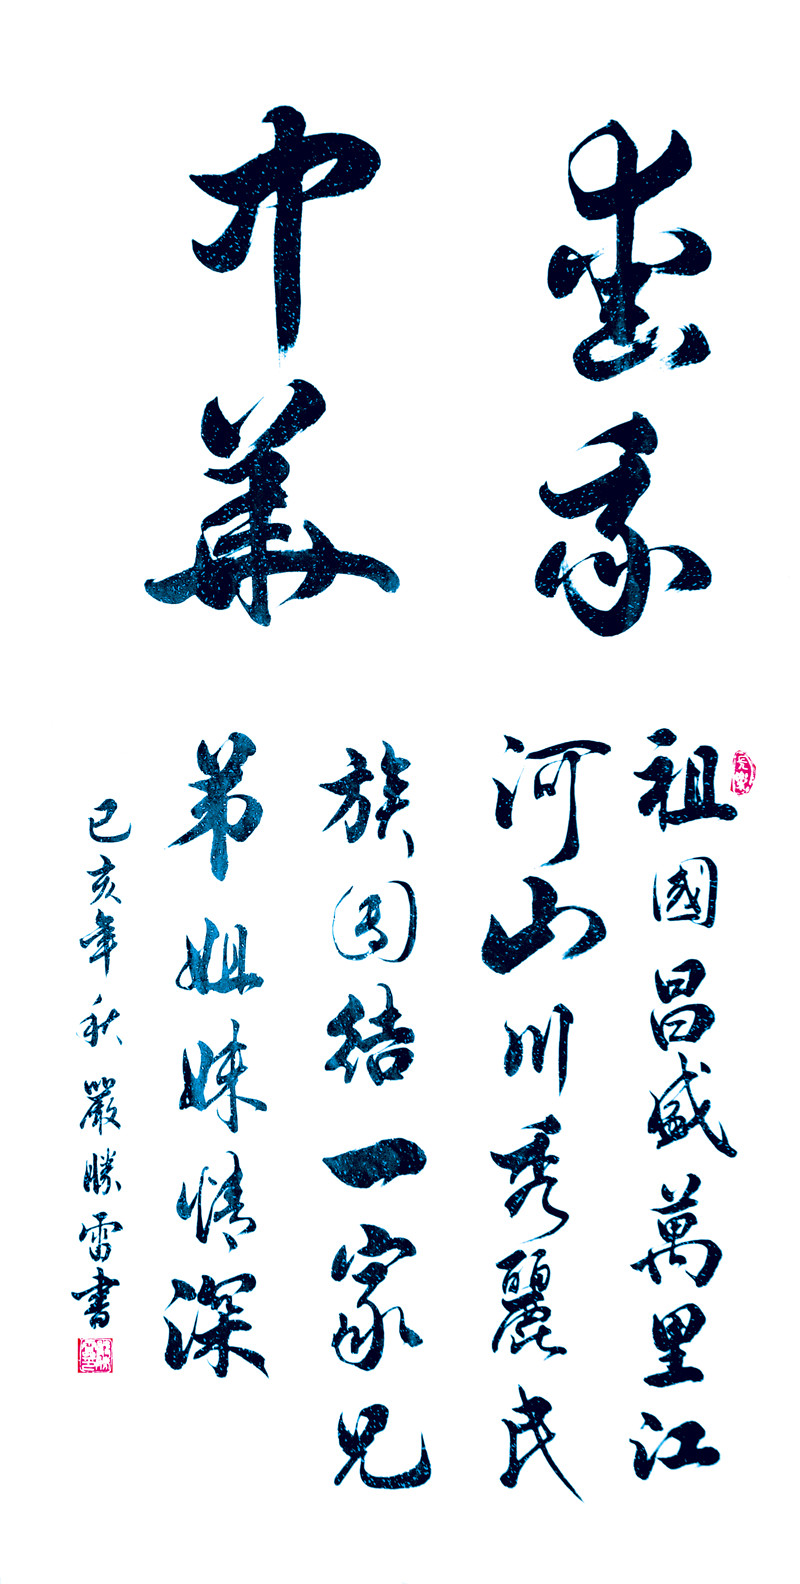 愛我
中華
祖國昌盛萬里江
河山川秀麗民
族團结一家兄
弟姐妹情深
己亥年秋嚴勝雷書